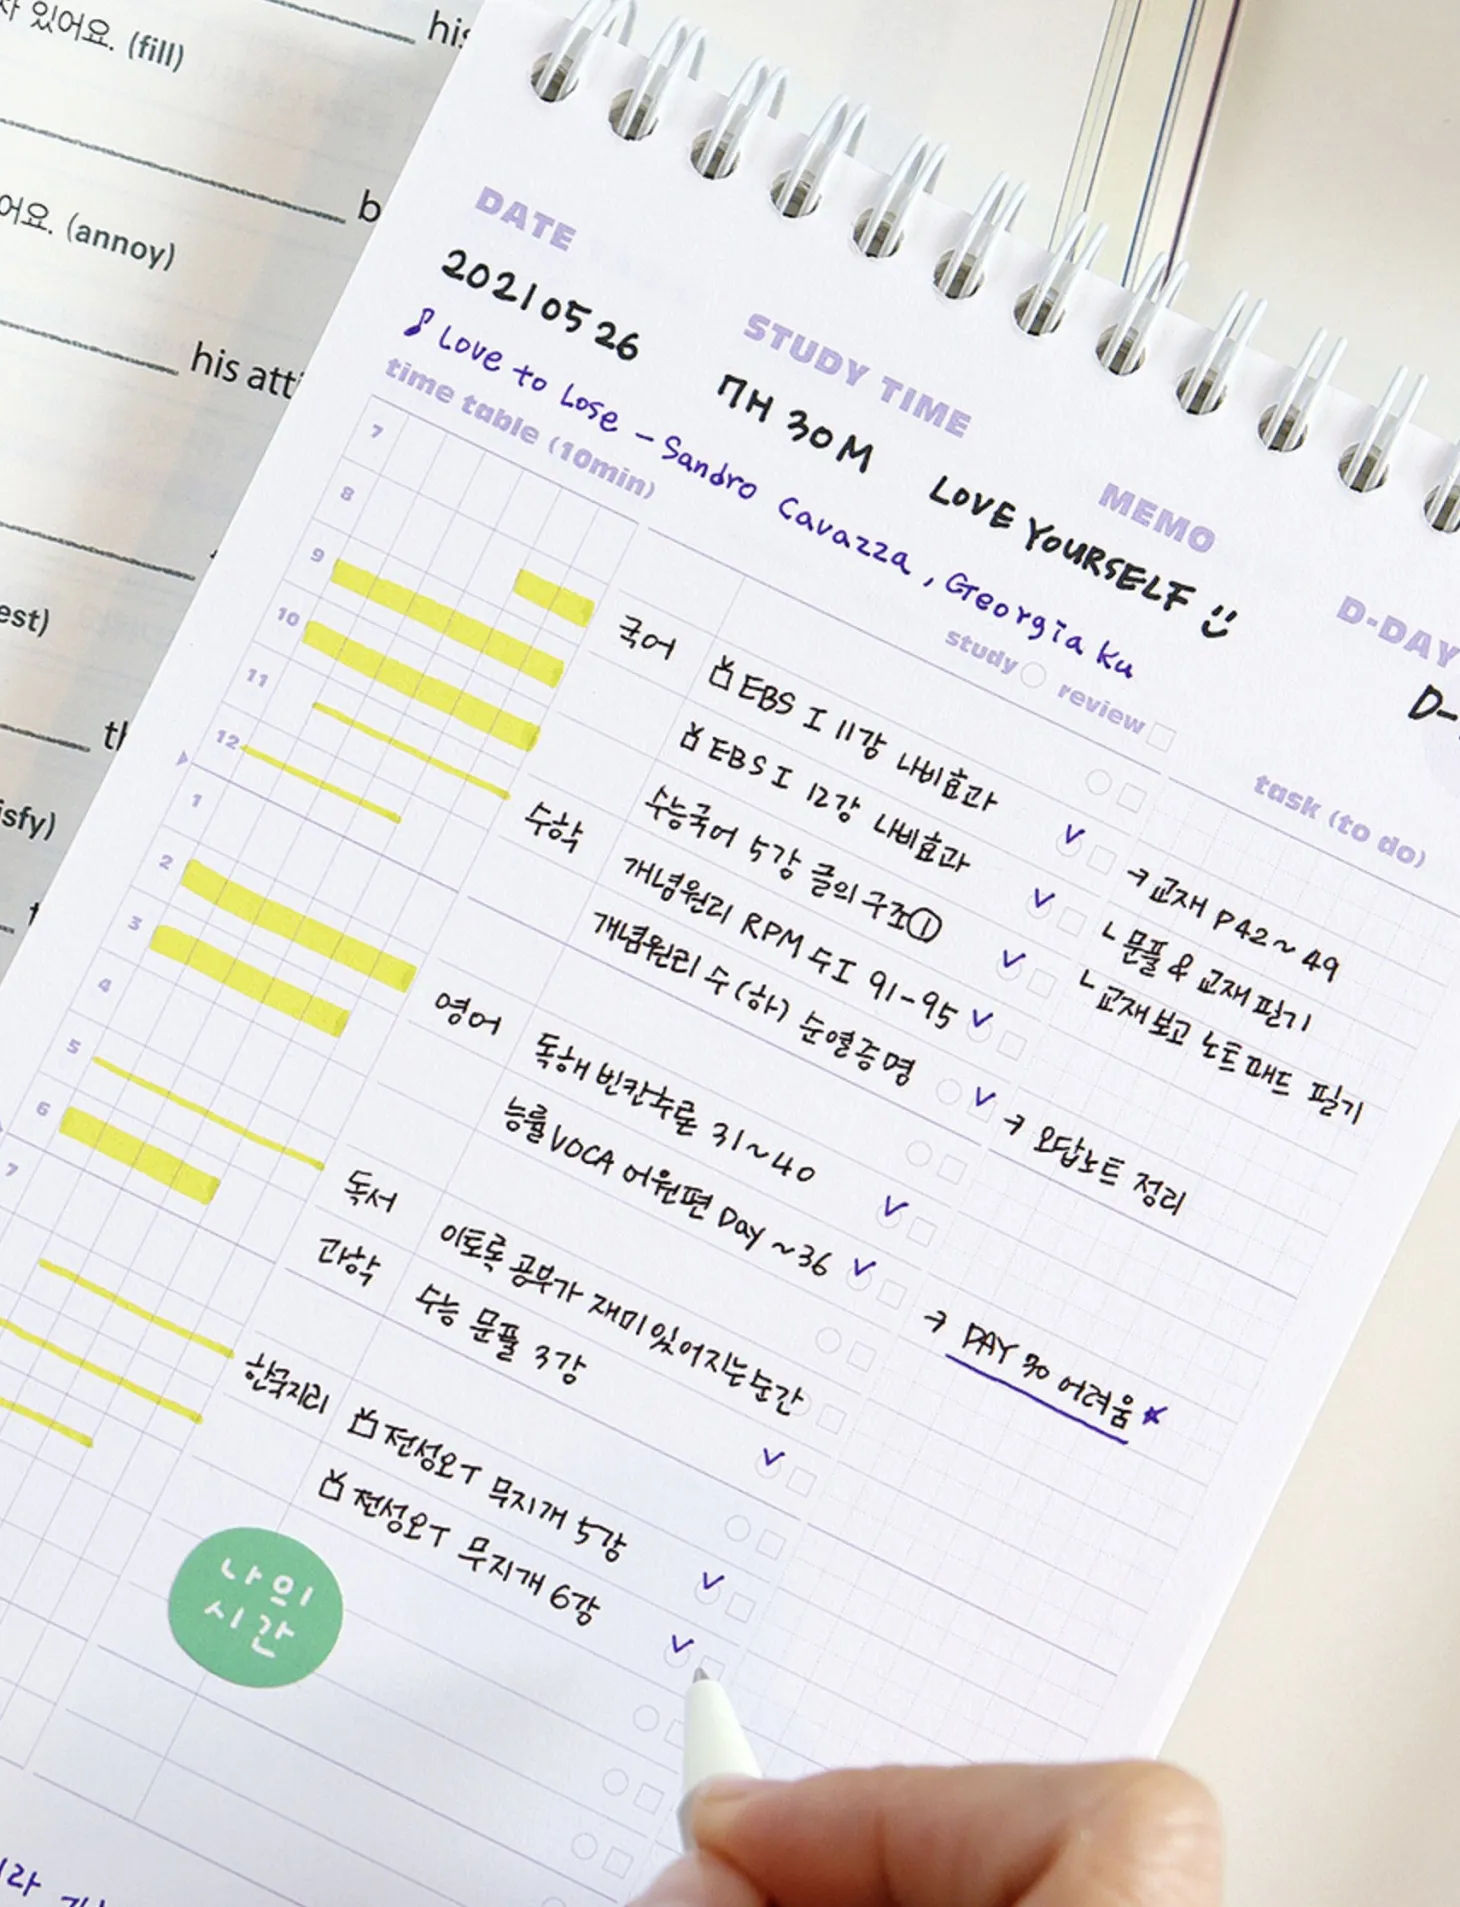 있어요. (fill)
his
b
어요. (annoy)
his atti
est)
th
sfy)
DATE
20210526
STUDY TIME
ΠH 30M
MEMO
LOVE YOURSELF
D-DAY
D-
♪ Love to Lose - Sandro Cavazza, Georgia Ku
time table (10min)
study review
task (to do)
7
8
9
10
11
12
1
2
3
4
5
6
7
국어 EBS I 11강 나비효과
EBS I 12강 나비효과 → 교재 P42~49
수능국어 5강 글의 구조① ㄴ 문풀 & 교재 필기
수학 개념원리 RPM 수I 91-95 ㄴ 교재 보고 노트패드 필기
개념원리 수(하) 순열증명 → 오답노트 정리
영어 독해 빈칸추론 31~40
능률 VOCA 어원편 Day ~36 → DAY 30 어려움
독서 이토록 공부가 재미있어지는 순간
과학 수능 문풀 3강
한국지리 전성오T 무지개 5강
전성오T 무지개 6강
나의
시간